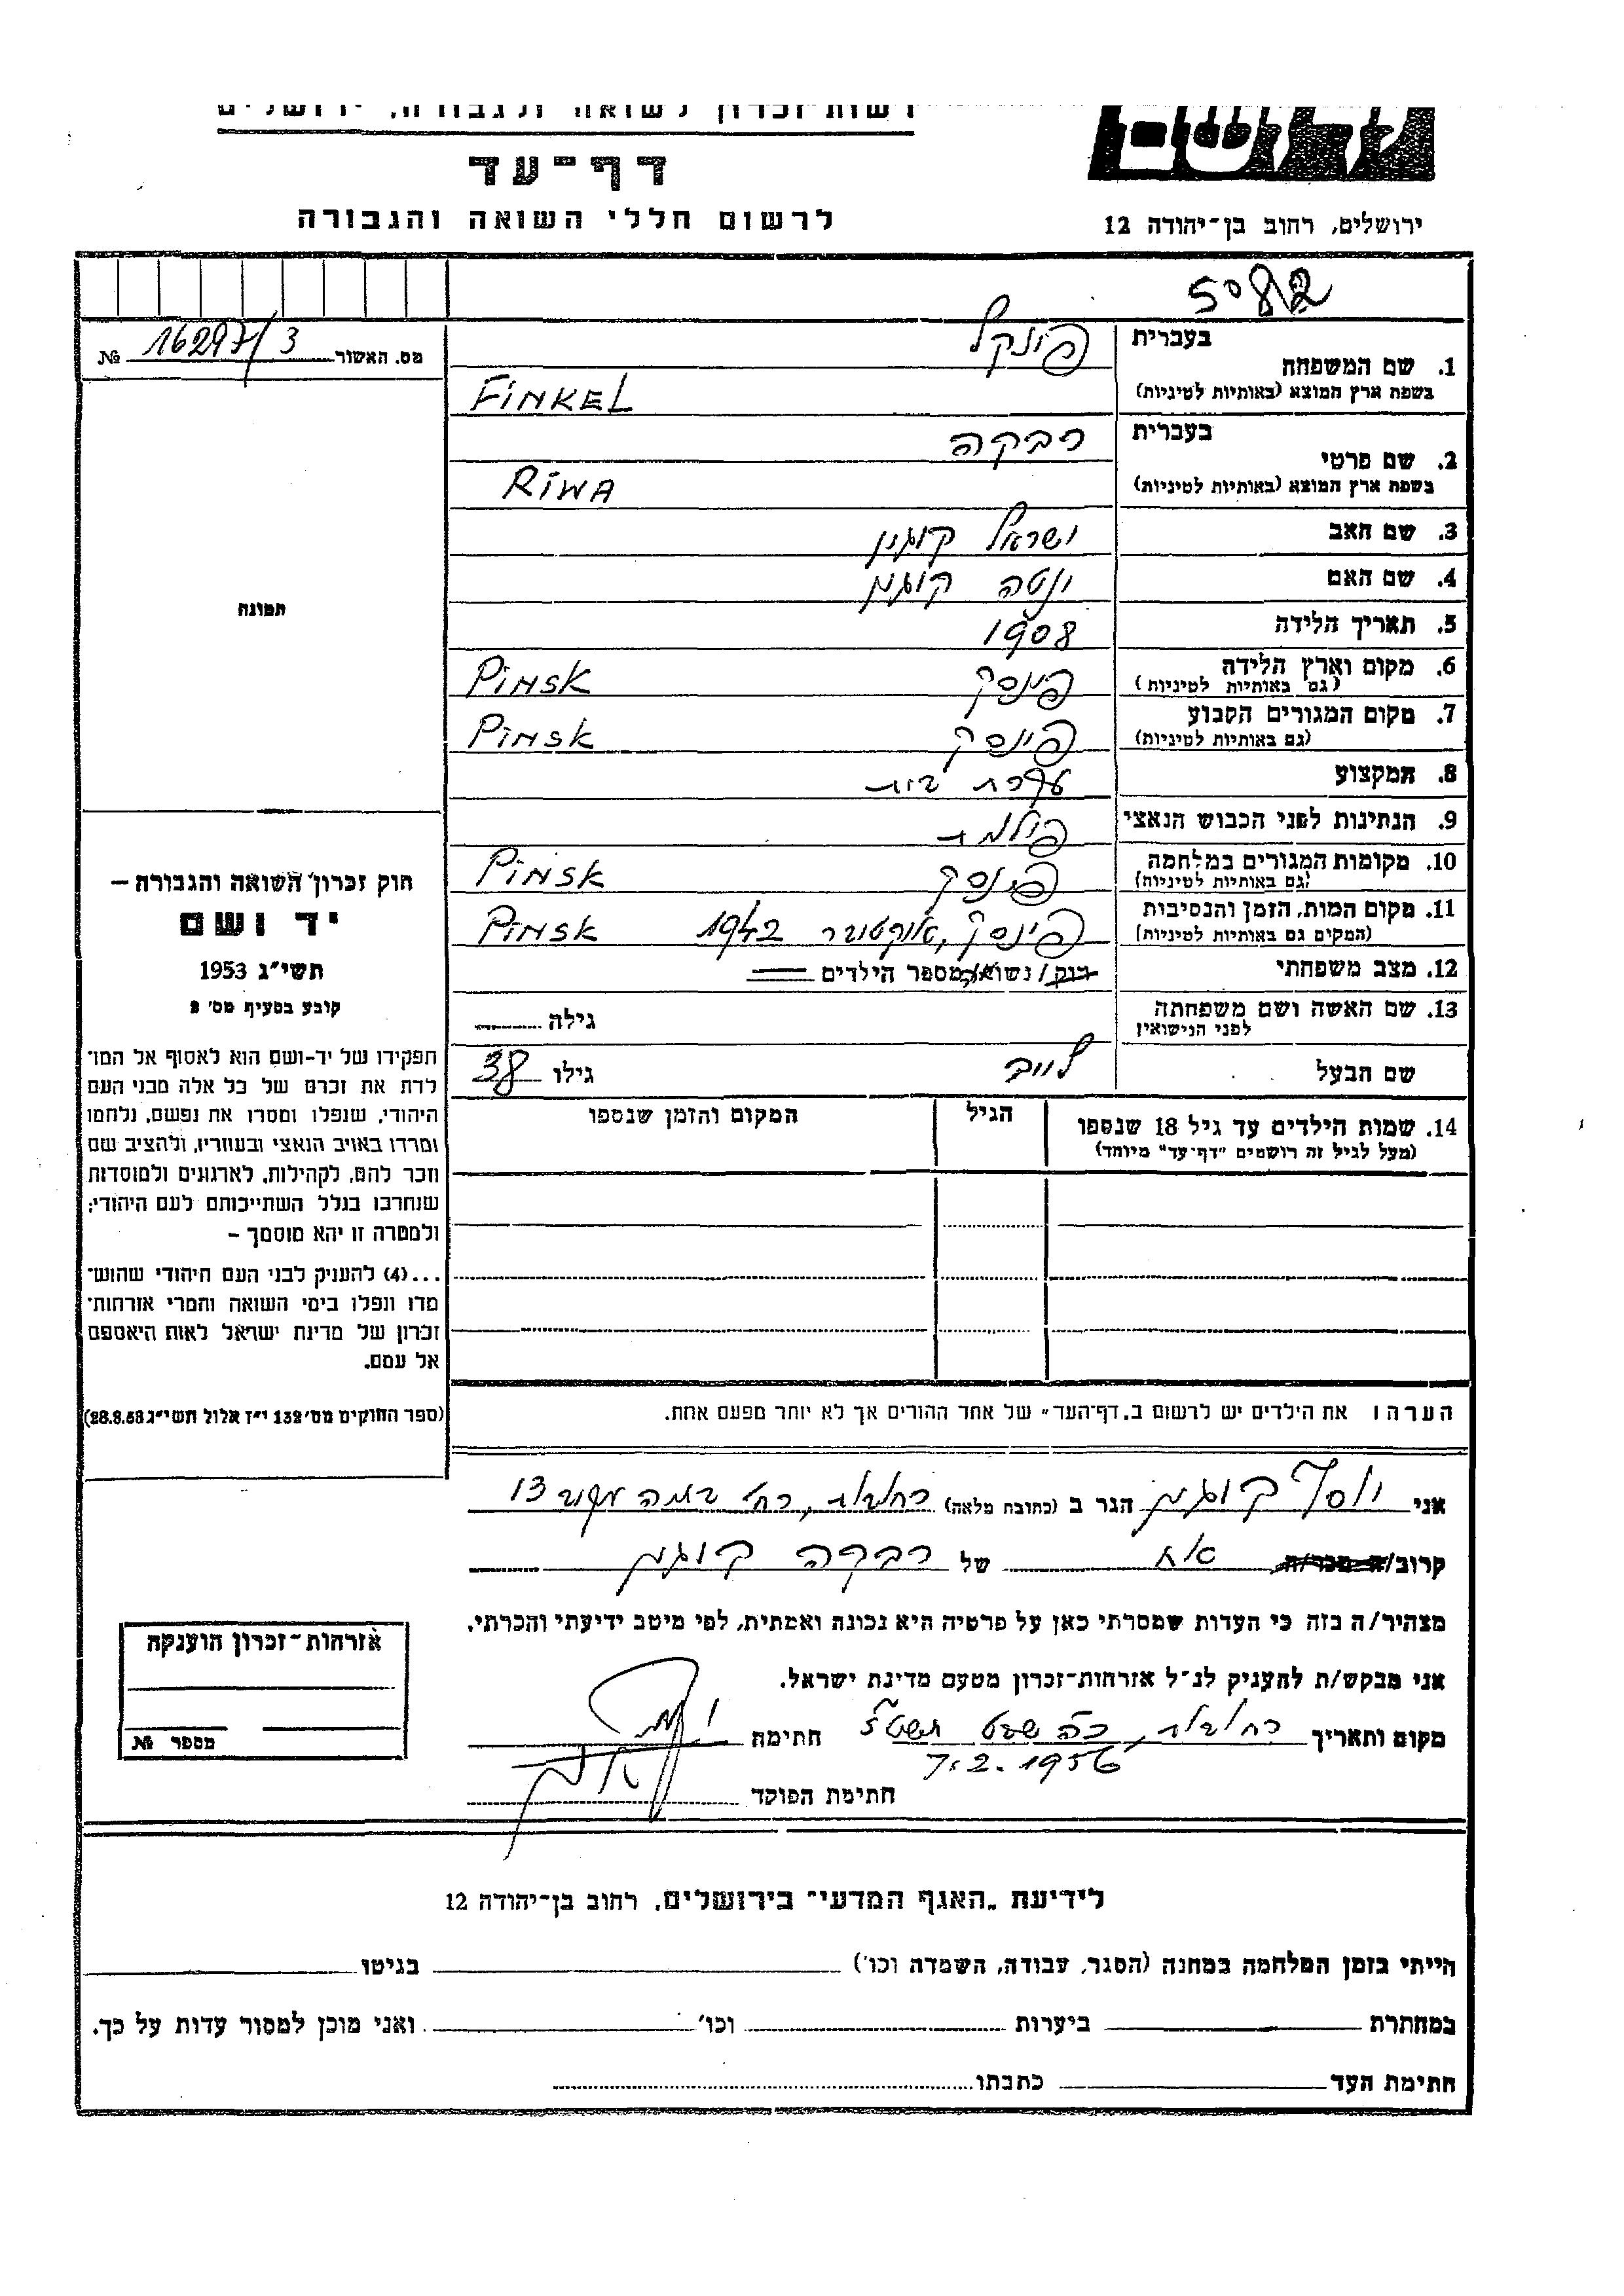 רשות-זכרון לשואה ולגבורה, ירושלים
דף-עד
לרשום חללי השואה והגבורה
ירושלים, רחוב בן-יהודה 12
5082
מס. האשור 16297/3 №
תמונה
בעברית פינקל
1. שם המשפחה
בשפת ארץ המוצא (באותיות לטיניות) FINKEL
בעברית רבקה
2. שם פרטי
בשפת ארץ המוצא (באותיות לטיניות) RIWA
3. שם האב ישראל
4. שם האם ינטה
5. תאריך הלידה 1908
6. מקום וארץ הלידה פינסק Pinsk
(גם באותיות לטיניות)
7. מקום המגורים הקבוע פינסק Pinsk
(גם באותיות לטיניות)
8. המקצוע עקרת בית
9. הנתינות לפני הכבוש הנאצי פולנית
10. מקומות המגורים במלחמה פינסק Pinsk
(גם באותיות לטיניות)
11. מקום המות, הזמן והנסיבות פינסק, אוקטובר 1942 Pinsk
(המקום גם באותיות לטיניות)
12. מצב משפחתי רווק/ נשוי/אה מספר הילדים
13. שם האשה ושם משפחתה גילה
לפני הנישואין
שם הבעל לייב גילו 38
14. שמות הילדים עד גיל 18 שנספו הגיל המקום והזמן שנספו
(מעל לגיל זה רושמים "דף-עד" מיוחד)
חוק זכרון השואה והגבורה –
יד ושם
תשי"ג 1953
קובע בסעיף מס' 2
תפקידו של יד-ושם הוא לאסוף אל המו־
לדת את זכרם של כל אלה מבני העם
היהודי, שנפלו ומסרו את נפשם, נלחמו
ומרדו באויב הנאצי ובעוזריו, ולהציב שם
וזכר להם, לקהילות, לארגונים ולמוסדות
שנחרבו בגלל השתייכותם לעם היהודי;
ולמטרה זו יהא מוסמך –
...(4) להעניק לבני העם היהודי שהוש־
מדו ונפלו בימי השואה והמרי אזרחות־
זכרון של מדינת ישראל לאות היאספם
אל עמם.
(ספר החוקים מס' 132 י"ז אלול תשי"ג 28.8.53)
הערה: את הילדים יש לרשום ב„דף-העד" של אחד ההורים אך לא יותר מפעם אחת.
אני יוסף הגר ב (כתובת מלאה) רחובות, רח' 13
קרוב/ה מכר/ה אח של רבקה
מצהיר/ה בזה כי העדות שמסרתי כאן על פרטיה היא נכונה ואמתית, לפי מיטב ידיעתי והכרתי.
אני מבקש/ת להעניק לנ"ל אזרחות-זכרון מטעם מדינת ישראל.
מקום ותאריך רחובות, כ"ה שבט תשט"ז חתימה
7.2.1956
חתימת הפוקד
אזרחות-זכרון הוענקה
מספר №
לידיעת „האגף המדעי" בירושלים, רחוב בן-יהודה 12
הייתי בזמן המלחמה במחנה (הסגר, עבודה, השמדה וכו') בגיטו
במחתרת ביערות וכו' ואני מוכן למסור עדות על כך.
חתימת העד כתבתו